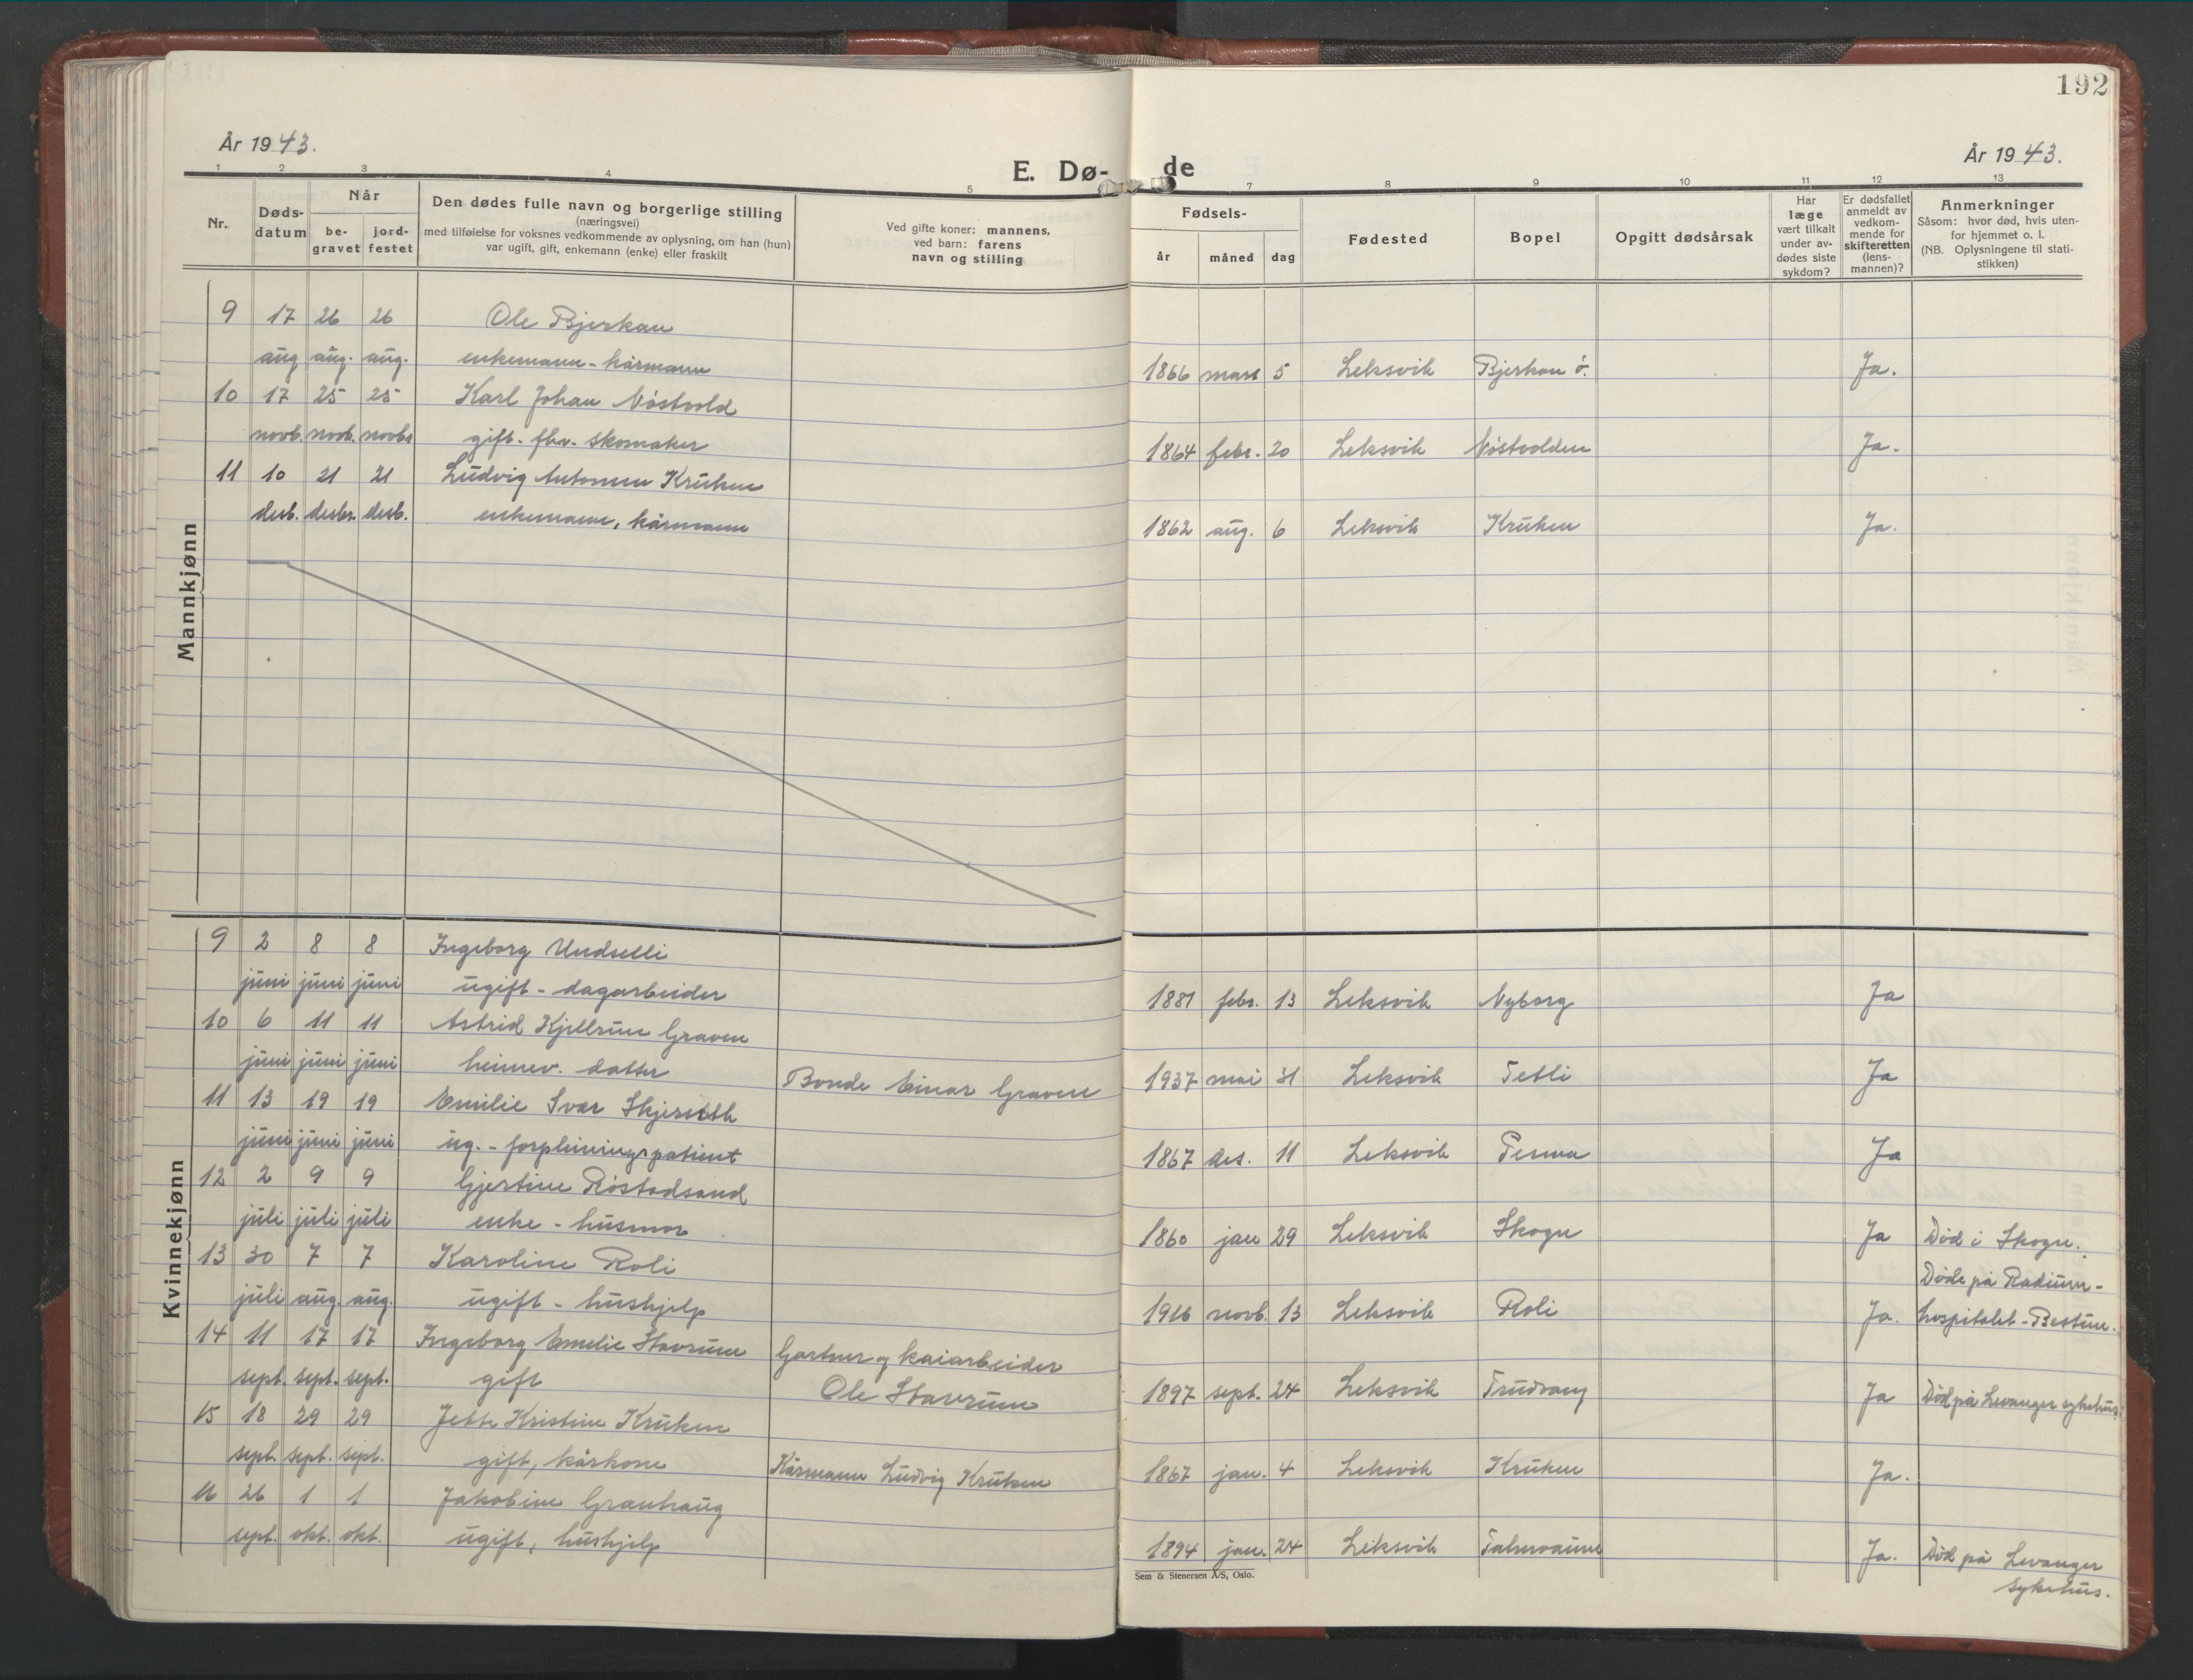 192
År 1943.
E. Dø- de
År 1943.
1 2 3 4 5 7 8 9 10 11 12 13
Nr.
Døds-
datum
Når
be-
gravet
jord-
festet
Den dødes fulle navn og borgerlige stilling
(næringsvei)
med tilføielse for voksnes vedkommende av oplysning, om han (hun)
var ugift, gift, enkemann (enke) eller fraskilt
Ved gifte koner: mannens,
ved barn: farens
navn og stilling
Fødsels-
år måned dag
Fødested
Bopel
Opgitt dødsårsak
Har
læge
vært tilkalt
under av-
dødes siste
sykdom?
Er dødsfallet
anmeldt av
vedkom-
mende for
skifteretten
(lens-
mannen)?
Anmerkninger
Såsom: hvor død, hvis uten-
for hjemmet o. l.
(NB. Oplysningene til stati-
stikken)
Mannkjønn
9 17 26 26 Ole Bjerkan
aug aug. aug. enkemann - kårmann 1866 mars 5 Leksvik Bjerkan ø. Ja.
10 17 25 25 Karl Johan Nøstvold
novb. novb. novbr gift - fhv. skomaker 1864 febr. 20 Leksvik Nøstvolden Ja.
11 10 21 21 Ludvig Antonsen Kruken
desb. desbr. desb. enkemann, kårmann 1862 aug. 6 Leksvik Kruken Ja.
Kvinnekjønn
9 2 8 8 Ingeborg Undselli
juni juni juni ugift - dagarbeider 1881 febr. 13 Leksvik Nyborg Ja
10 6 11 11 Astrid Kjellrun Graven
juni juni juni heimev. datter Bonde Einar Graven 1937 mai 31 Leksvik Tetli Ja
11 13 19 19 Emilie Ivar Skjerseth
juni juni juni ug. - forpleiningspatient 1867 des. 11 Leksvik Ja
12 2 9 9 Gjertine Røstadsand
juli juli juli enke - husmor 1860 jan 29 Leksvik Skogn Ja Død i Skogn.
13 30 7 7 Karoline Roli Døde på Radium-
juli aug. aug. ugift - hushjelp 1916 novb. 13 Leksvik Roli Ja. hospitalet - Bestum.
14 11 17 17 Ingeborg Emelie Stavrum Gartner og kaiarbeider
sept. sept. sept. gift Ole Stavrum 1897 sept. 24 Leksvik Trudvang Ja Død på Levanger sykehus.
15 18 29 29 Jette Kristine Kruken
sept. sept. sept. gift, kårkone Kårmann Ludvig Kruken 1867 jan. 4 Leksvik Kruken Ja.
16 26 1 1 Jakobine Granhaug
sept. okt. okt. ugift, hushjelp 1894 jan. 24 Leksvik Ja. Død på Levanger
sykehus.
Sem & Stenersen A/S, Oslo.